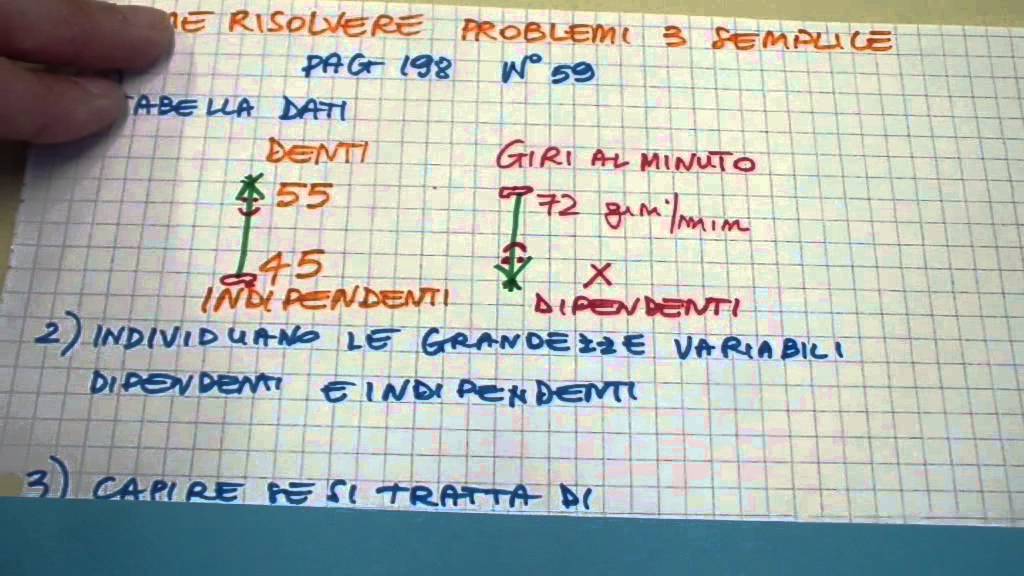 ME RISOLVERE PROBLEMI 3 SEMPLICE
PAG 198 N° 59
TABELLA DATI
DENTI GIRI AL MINUTO
55 72 giri/min
45 X
INDIPENDENTI DIPENDENTI
2) INDIVIDUANO LE GRANDEZZE VARIABILI
DIPENDENTI E INDIPENDENTI
3) CAPIRE SE SI TRATTA DI